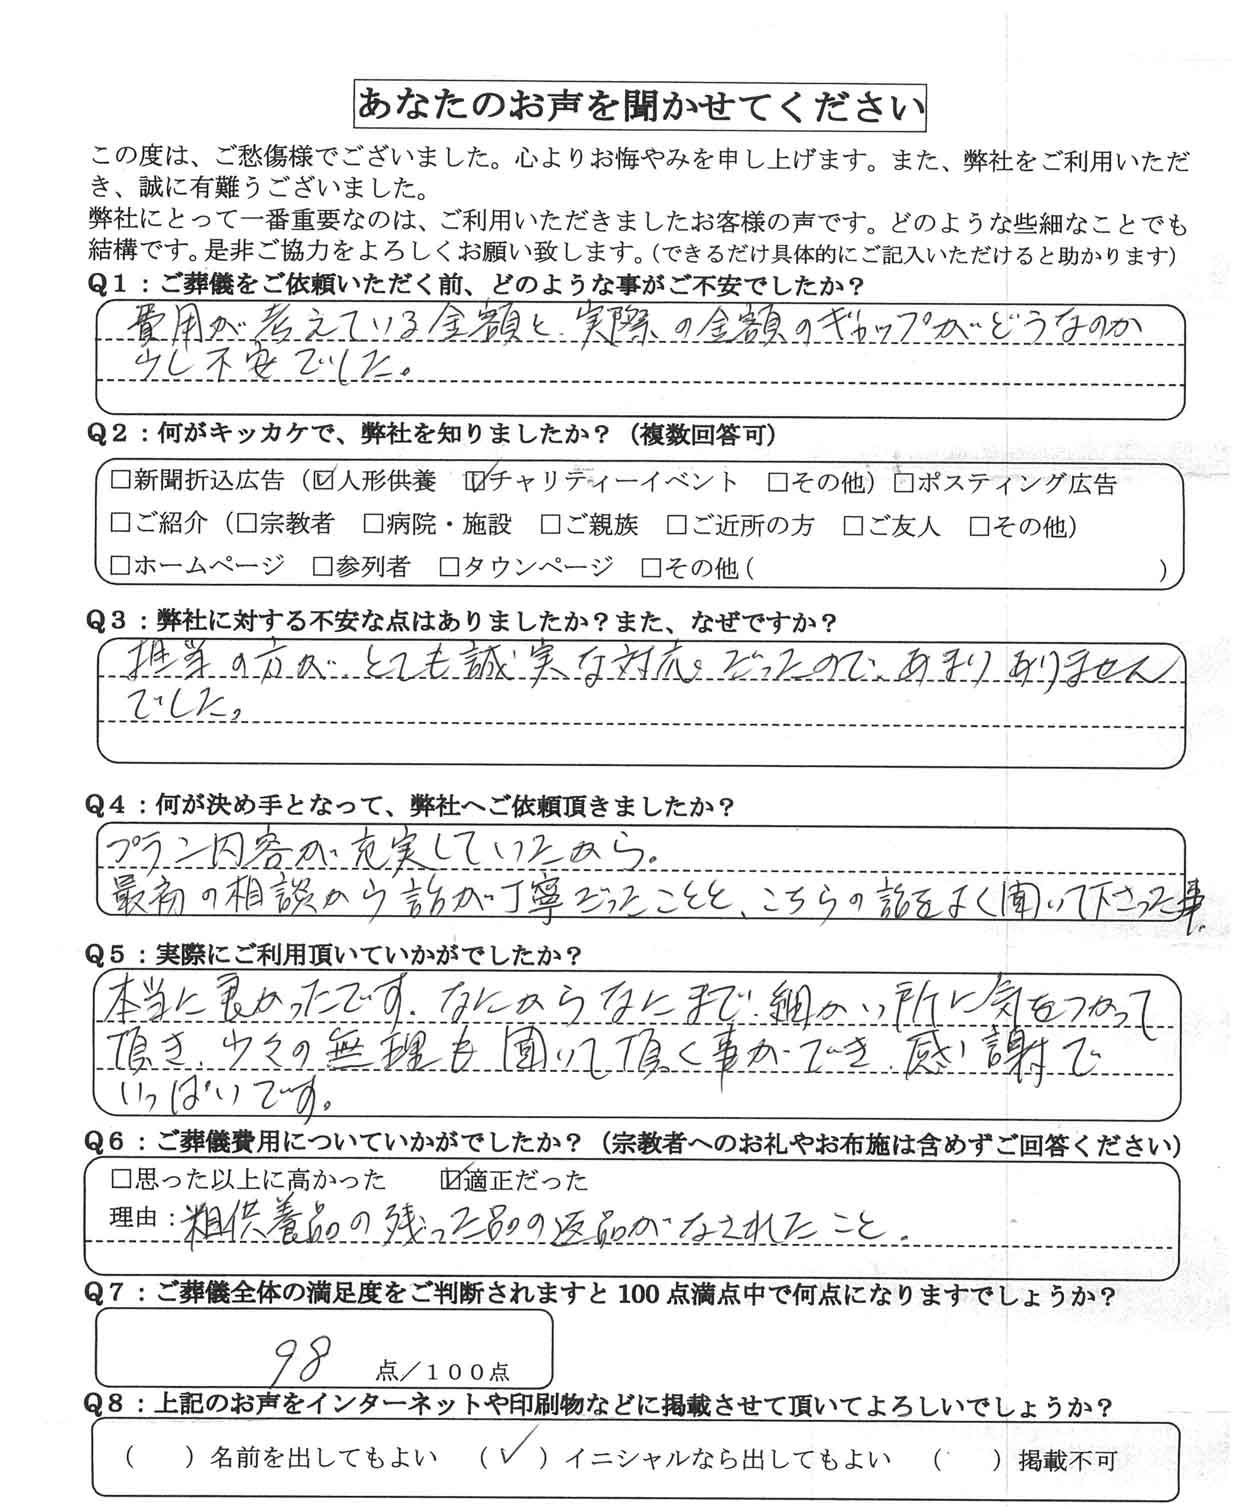 あなたのお声を聞かせてください
この度は、ご愁傷様でございました。心よりお悔やみを申し上げます。また、弊社をご利用いただ
き、誠に有難うございました。
弊社にとって一番重要なのは、ご利用いただきましたお客様の声です。どのような些細なことでも
結構です。是非ご協力をよろしくお願い致します。（できるだけ具体的にご記入いただけると助かります）
Q１：ご葬儀をご依頼いただく前、どのような事がご不安でしたか？
費用が考えている金額と、実際の金額のギャップがどうなのか
少し不安でした。
Q２：何がキッカケで、弊社を知りましたか？（複数回答可）
□新聞折込広告（☑人形供養　☑チャリティーイベント　□その他）□ポスティング広告
□ご紹介（□宗教者　□病院・施設　□ご親族　□ご近所の方　□ご友人　□その他）
□ホームページ　□参列者　□タウンページ　□その他（　　　　）
Q３：弊社に対する不安な点はありましたか？また、なぜですか？
担当の方が、とても誠実な対応だったので、あまりありません
でした。
Q４：何が決め手となって、弊社へご依頼頂きましたか？
プラン内容が充実していたから。
最初の相談から話が丁寧だったことと、こちらの話をよく聞いて下さった事。
Q５：実際にご利用頂いていかがでしたか？
本当に良かったです。なにからなにまで細かい所に気をつかって
頂き、少々の無理も聞いて頂く事ができ、感謝で
いっぱいです。
Q６：ご葬儀費用についていかがでしたか？（宗教者へのお礼やお布施は含めずご回答ください）
□思った以上に高かった　☑適正だった
理由：粗供養品の残った品の返品がなされたこと。
Q７：ご葬儀全体の満足度をご判断されますと100点満点中で何点になりますでしょうか？
98　点／１００点
Q８：上記のお声をインターネットや印刷物などに掲載させて頂いてよろしいでしょうか？
（　）名前を出してもよい　（✓）イニシャルなら出してもよい　（　）掲載不可